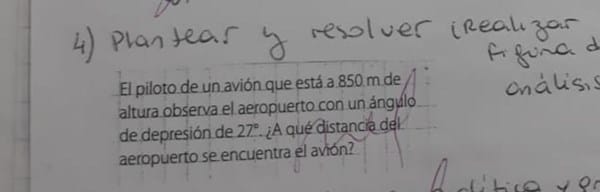 4) Plantear y resolver (Realizar
figura d
análisis
El piloto de un avión que está a 850 m de
altura observa el aeropuerto con un ángulo
de depresión de 27°. ¿A qué distancia del
aeropuerto se encuentra el avión?